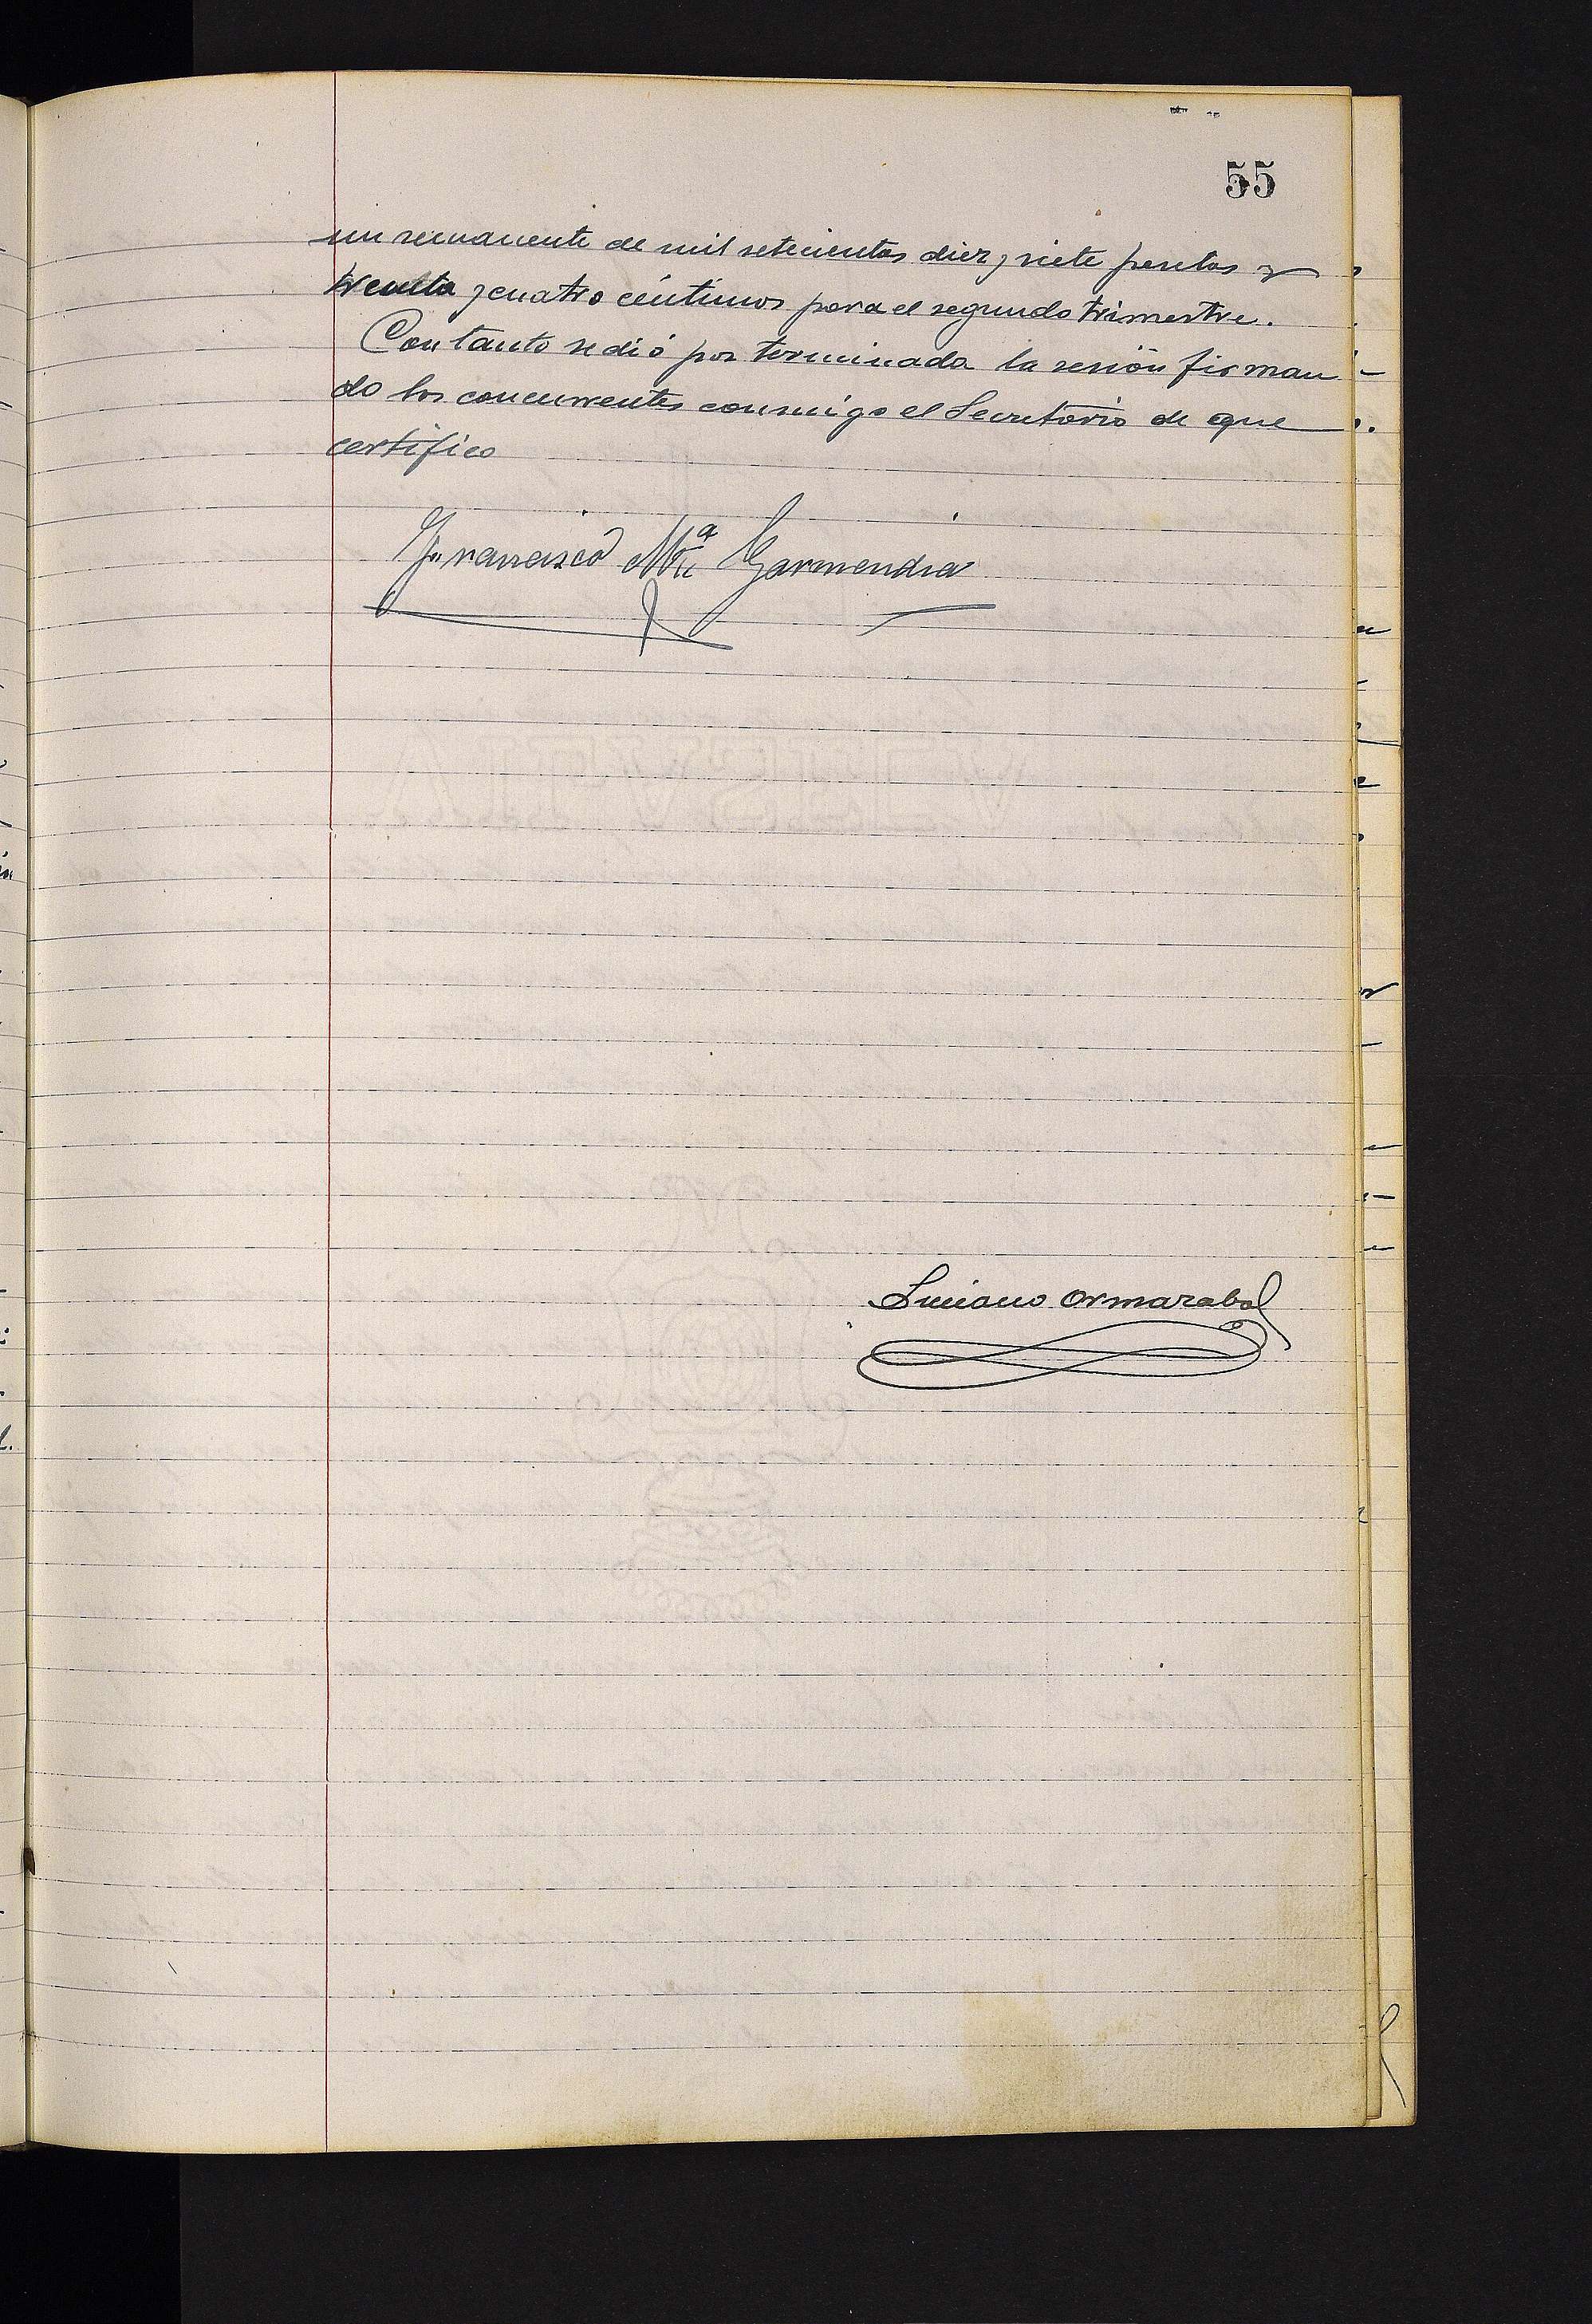 55
un remanente de mil setecientas diez y siete pesetas y
treinta y cuatro céntimos para el segundo trimestre.
Con tanto se dió por terminada la sesión firman
do los concurrentes conmigo el Secretario de que
certifico
Francisco Mª Garmendia
Luciano Ormazabal